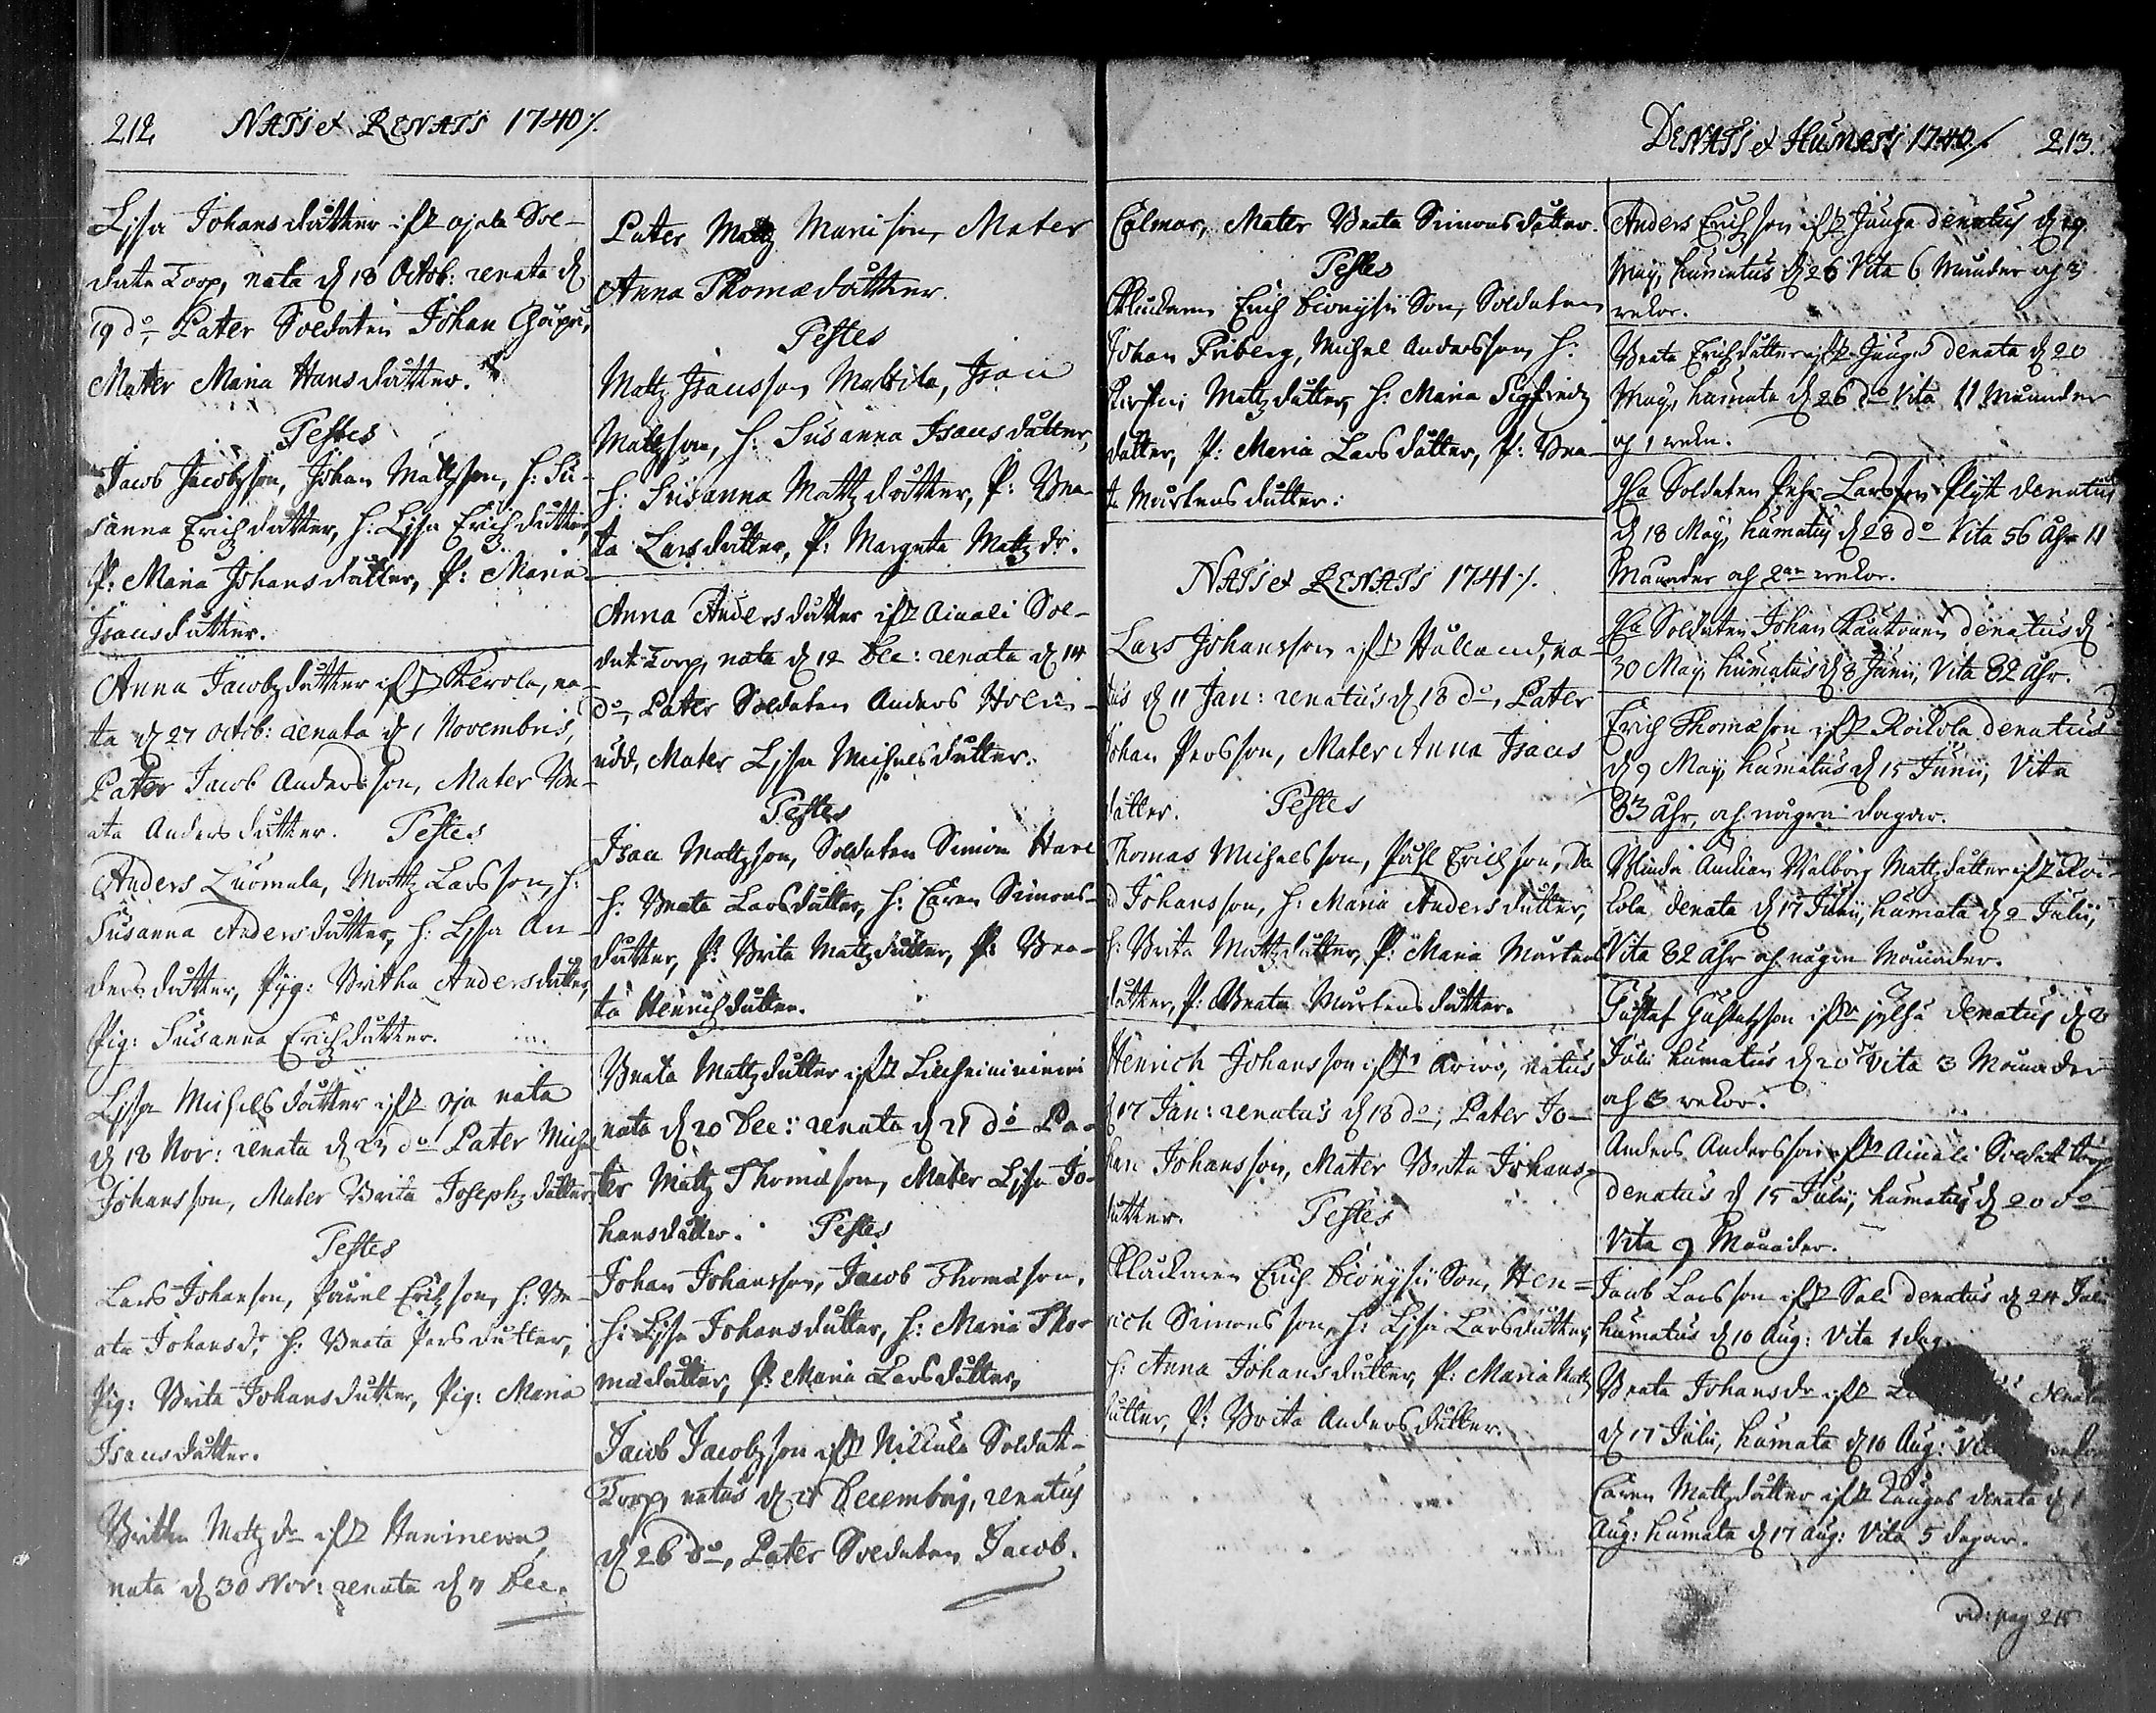 212 NATI et RENATI 1740 ∕.
Lisa Johansdåtter ifr Ojala Sol-
data Torp, nata d 18 Octob: renata d
19 do, Pater Soldaten Johan
Mater Maria Hansdåtter.
Testes
Jacob Jacobsson, Johan Mattsson, h: Su-
sanna Erichsdåtter, h: Lisa Erichsdåtter,
P: Maria Johansdåtter, P: Maria
Isacsdåtter.
Anna Jacobsdåtter ifr Kerola, na-
ta d 27 Octob: renata d 1 Novembris,
Pater Jacob Andersson, Mater Be-
ata Andersdåtter. Testes
Anders Luomala, Mattz Larsson, h:
Susanna Andersdåtter, h: Lisa An-
dersdåtter, Pyg: Britha Andersdåtter,
Pig: Susanna Erichsdåtter.
Lisa Michelsdåtter ifr Oja nata
d 18 Nov: renata d 23 do Pater Mich:
Johansson, Mater Brita Josephsdåtter
Testes
Lars Johanson, Påvel Erichsson, h: Be-
ata Johansdr, h: Beata Persdåtter,
Pig: Brita Johansdåtter, Pig: Maria
Isacsdåtter.
Britha Mattzdr ifr Haninen,
nata d 30 Nov: renata d 7 Dec.
Pater Mattz Marcison, Mater
Anna Thomædåtter.
Testes
Mattz Isacsson Mattila, Isac
Mattzson, h: Susanna Isacsdåtter,
h: Susanna Mattzdåtter, P: Bea-
ta Larsdåtter, P: Margeta Mattzdr.
Anna Andersdåtter ifr Ainali Sol-
dat Torp, nata d 12 Dec: renata d 14
do, Pater Soldaten Anders Holm-
udd, Mater Lisa Michelsdåtter.
Testes
Isac Mattzson, Soldaten Simon Hare
h: Beata Larsdåtter, h: Caren Simons-
dåtter, P: Brita Mattzdåtter, P: Bea-
ta Henrichsdåtter.
Beata Mattzdåtter ifr
nata d 20 Dec: renata d 21 do Pa-
ter Mattz Thomæson, Mater Lisa Jo-
hansdåtter. Testes
Johan Johansson, Jacob Thomæson,
h: Lisa Johansdåtter, h: Maria Tho-
mædåtter, P: Maria Larsdåtter,
Jacob Jacobsson ifr Niskula Soldat-
Torp, natus d 21 Decembris, renatus
d 26 do, Pater Soldaten Jacob
DENATI et HUMATI 1740 ∕. 213.
Colmar, Mater Beata Simonsdåtter.
Testes
Klockaren Erich Dionysii Son, Soldaten
Johan Friberg, Michel Andersson, h:
Kirstin Mattzdåtter, h: Maria Sigfredz
dåtter, P: Maria Larsdåtter, P: Bea-
ta Mårtensdåtter:
NATI et RENATI 1741 ∕.
Lars Johansson ifr Hålland, na-
tus d 11 Jan: renatus d 18 do, Pater
Johan Persson, Mater Anna Isacs
dåtter. Testes
Thomas Michelsson, Påhl Erichsson, Da
d Johansson, h: Maria Andersdåtter,
h: Brita Mattzdåtter, P: Maria Mårtens
dåtter, P: Beata Mårtensdåtter.
Henrich Johansson ifr Arwo, natus
d 17 Jan: renatus d 18 do, Pater Jo-
han Johansson, Mater Brita Johans-
dåtter. Testes
Klockaren Erich Dionysii Son, Hen-
rich Simonsson, h: Lisa Larsdåtter,
h: Anna Johansdåtter, P: Maria Mattz
dåtter, P: Brita Andersdåtter.
Anders Erichsson ifr Junga denatus d 19
Maij, humatus d 26 Vita 6 Månader och 3
wekor.
Beata Erichsdåtter ifr Junga denata d 20
Maij, humata d 26 do Vita 11 Månader
och 1 weka.
Soldaten Pehr Larsson Flytt denatus
d 18 Maij, humatus d 28 do Vita 56 Åhr 11
Månader och 2 wekor.
Soldaten Johan Kautonen denatus d
30 Maij, humatus d 8 Junii, Vita 32 Åhr.
Erich Thomæson ifr Koikola denatus
d 9 Maij, humatus d 15 Junii, Vita
83 Åhr, och några dagar.
Blinda Änckian Walborg Mattzdåtter ifr Koi-
kola denata d 17 Junii, humata d 2 Julii,
Vita 82 Åhr och några Månader.
Gustaf Gustafsson ifr Jylhä denatus d 8
Julii humatus d 20 do Vita 3 Månader
och 3 wekor.
Anders Andersson ifr Ainali Soldat torp
denatus d 15 Julii, humatus d 20 do
Vita 9 Månader.
Jacob Larsson ifr Sali denatus d 24 Julii
humatus d 10 Aug: Vita 1 dag.
Beata Johansdr ifr denata
d 17 Julii, humata d 10 Aug:
Caren Mattzdåtter ifr Kangas denata d 1
Aug: humata d 17 Aug: Vita 5 dagar.
vid: pag 215